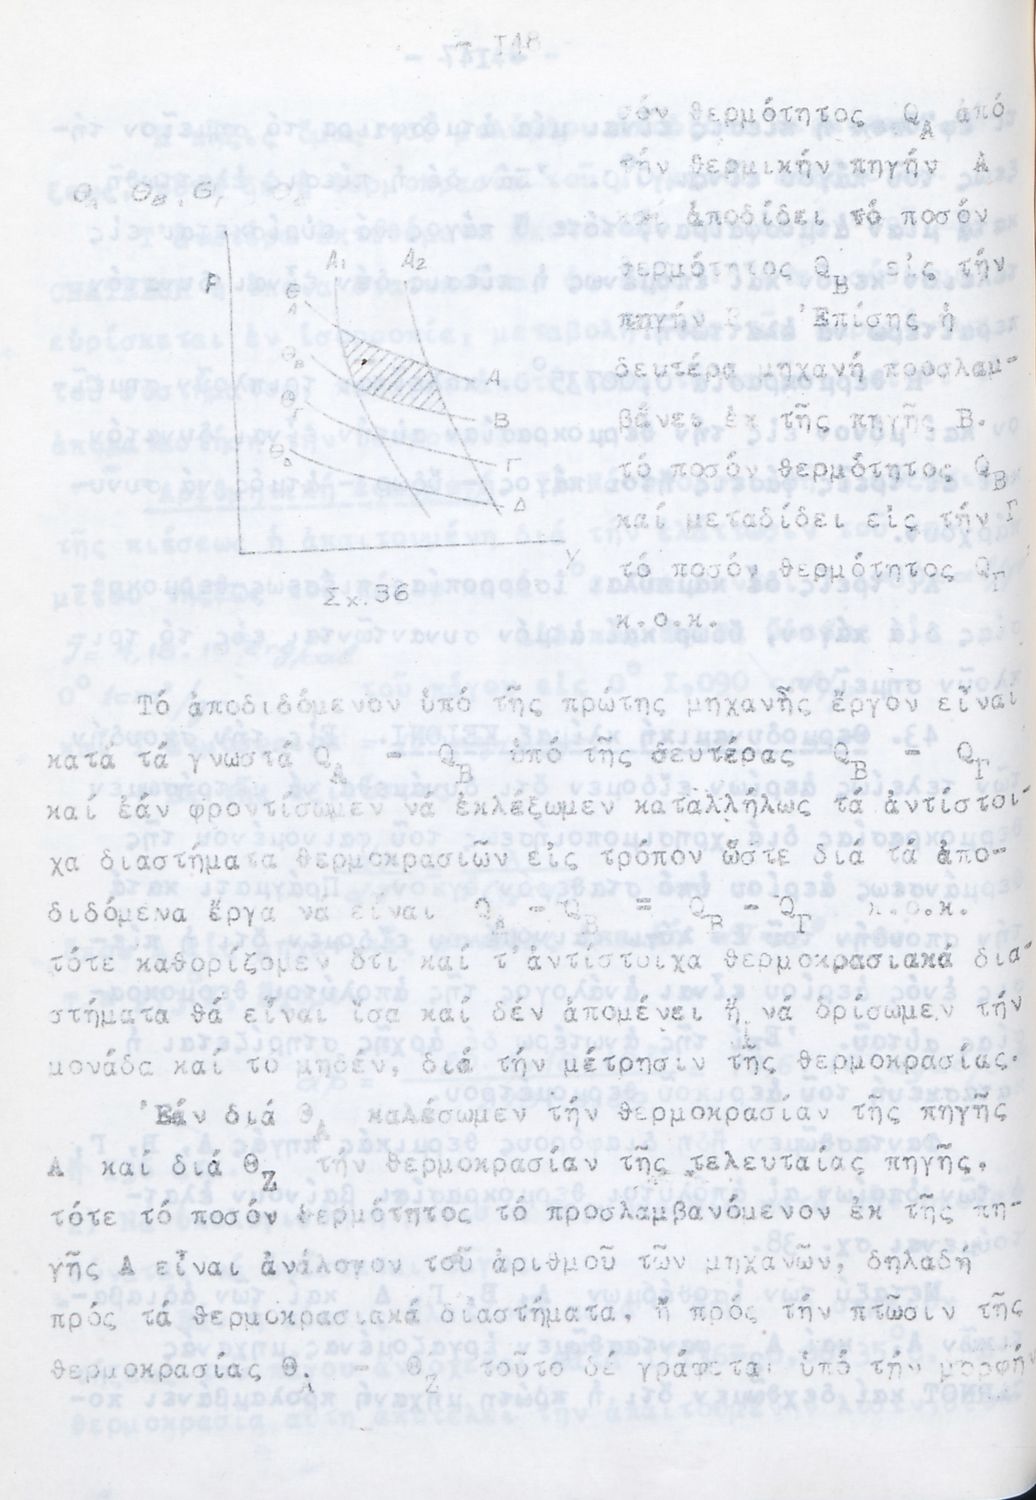 - 148
σόν θερμότητος Q_A ἀπό
τήν θερμικήν πηγήν A
καί ἀποδίδει τό ποσόν
θερμότητος Q_B εἰς τήν
πηγήν B. Ἐπίσης ἡ
δευτέρα μηχανή προσλαμ-
βάνει ἐκ τῆς πηγῆς B.
τό ποσόν θερμότητος Q_B
καί μεταδίδει εἰς τήν Γ
τό ποσόν θερμότητος Q_Γ
κ.ο.κ.
P
A1 A2
Θ_A
Θ_B
Θ_Γ
Θ_Δ
A
B
Γ
Δ
V
Σχ. 36
Τό ἀποδιδόμενον ὑπό τῆς πρώτης μηχανῆς ἔργον εἶναι
κατά τά γνωστά Q_A - Q_B ὑπό τῆς δευτέρας Q_B - Q_Γ
καί ἐάν φροντίσωμεν νά ἐκλέξωμεν καταλλήλως τά ἀντίστοι-
χα διαστήματα θερμοκρασιῶν εἰς τρόπον ὥστε διά τά ἀπο-
διδόμενα ἔργα νά εἶναι Q_A - Q_B = Q_B - Q_Γ κ.ο.κ.
τότε καθορίζομεν ὅτι καί τ'ἀντίστοιχα θερμοκρασιακά δια-
στήματα θά εἶναι ἴσα καί δέν ἀπομένει ἤ νά ὁρίσωμεν τήν
μονάδα καί το μηδέν, διά τήν μέτρησιν τῆς θερμοκρασίας.
Ἐάν διά Θ_A καλέσωμεν τήν θερμοκρασίαν τῆς πηγῆς
A καί διά Θ_Z τήν θερμοκρασίαν τῆς τελευταίας πηγῆς,
τότε τό ποσόν θερμότητος τό προσλαμβανόμενον ἐκ τῆς πη-
γῆς A εἶναι ἀνάλογον τοῦ ἀριθμοῦ τῶν μηχανῶν, δηλαδή
πρός τά θερμοκρασιακά διαστήματα, ἤ πρός τήν πτῶσιν τῆς
θερμοκρασίας Θ_A - Θ_Z τοῦτο δέ γράφεται ὑπό τήν μορφήν